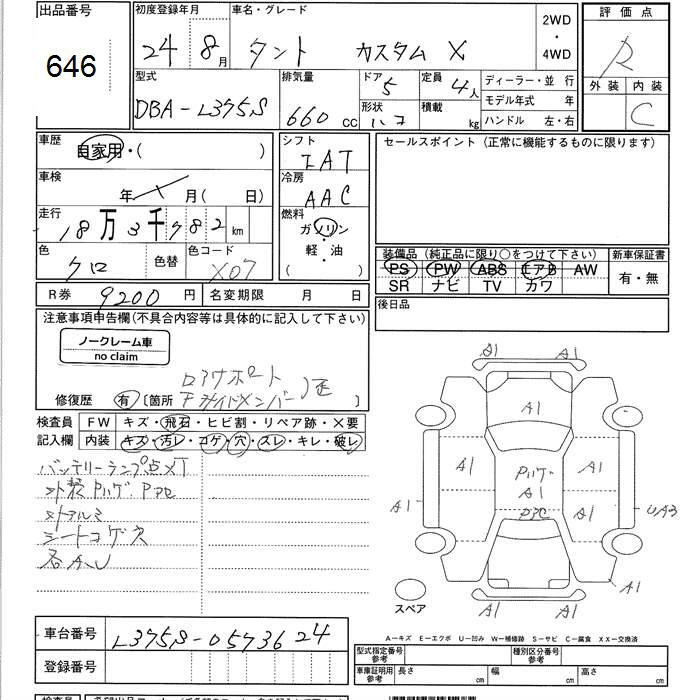 出品番号
646
初度登録年月
24 8月
車名・グレード
タント カスタム X
2WD
・
4WD
評価点
R
外装 内装
C
型式
DBA-L375S
排気量
660 cc
ドア 5
形状 ハコ
定員 4人
積載 kg
ディーラー・並 行
モデル年式 年
ハンドル 左・右
車歴
自家用・( )
車検
年 月( 日)
走行
18万3千782 km
色
クロ
色替
色コード
X07
シフト
IAT
冷房
AAC
燃料
ガソリン
・
軽・油
( )
セールスポイント (正常に機能するものに限ります)
装備品 (純正品に限り○をつけて下さい)
PS PW ABS エアB AW
SR ナビ TV カワ
新車保証書
有・無
R券 9200 円
名変期限 月 日
後日品
注意事項申告欄(不具合内容等は具体的に記入して下さい)
ノークレーム車
no claim
修復歴 有 [箇所
ロアサポート
Fサイドメンバー
検査員
記入欄
FW キズ・飛石・ヒビ割・リペア跡・X要
内装 キズ・汚レ・コゲ・穴・スレ・キレ・破レ
バッテリーランプ点メT
外装Pハゲ、P
外アルミ
シートコゲ穴
各A,U
A1 A1
A1
A1 Pハゲ A1
A1
A1 A1 UA3
A1
A1 A1
スペア
A-キズ E-エクボ U-凹み W-補修跡 S-サビ C-腐食 XX-交換済
車台番号
L375S-0573624
登録番号
型式指定番号
参考
種別区分番号
参考
車庫証明用
参考
長さ cm
幅 cm
高さ cm